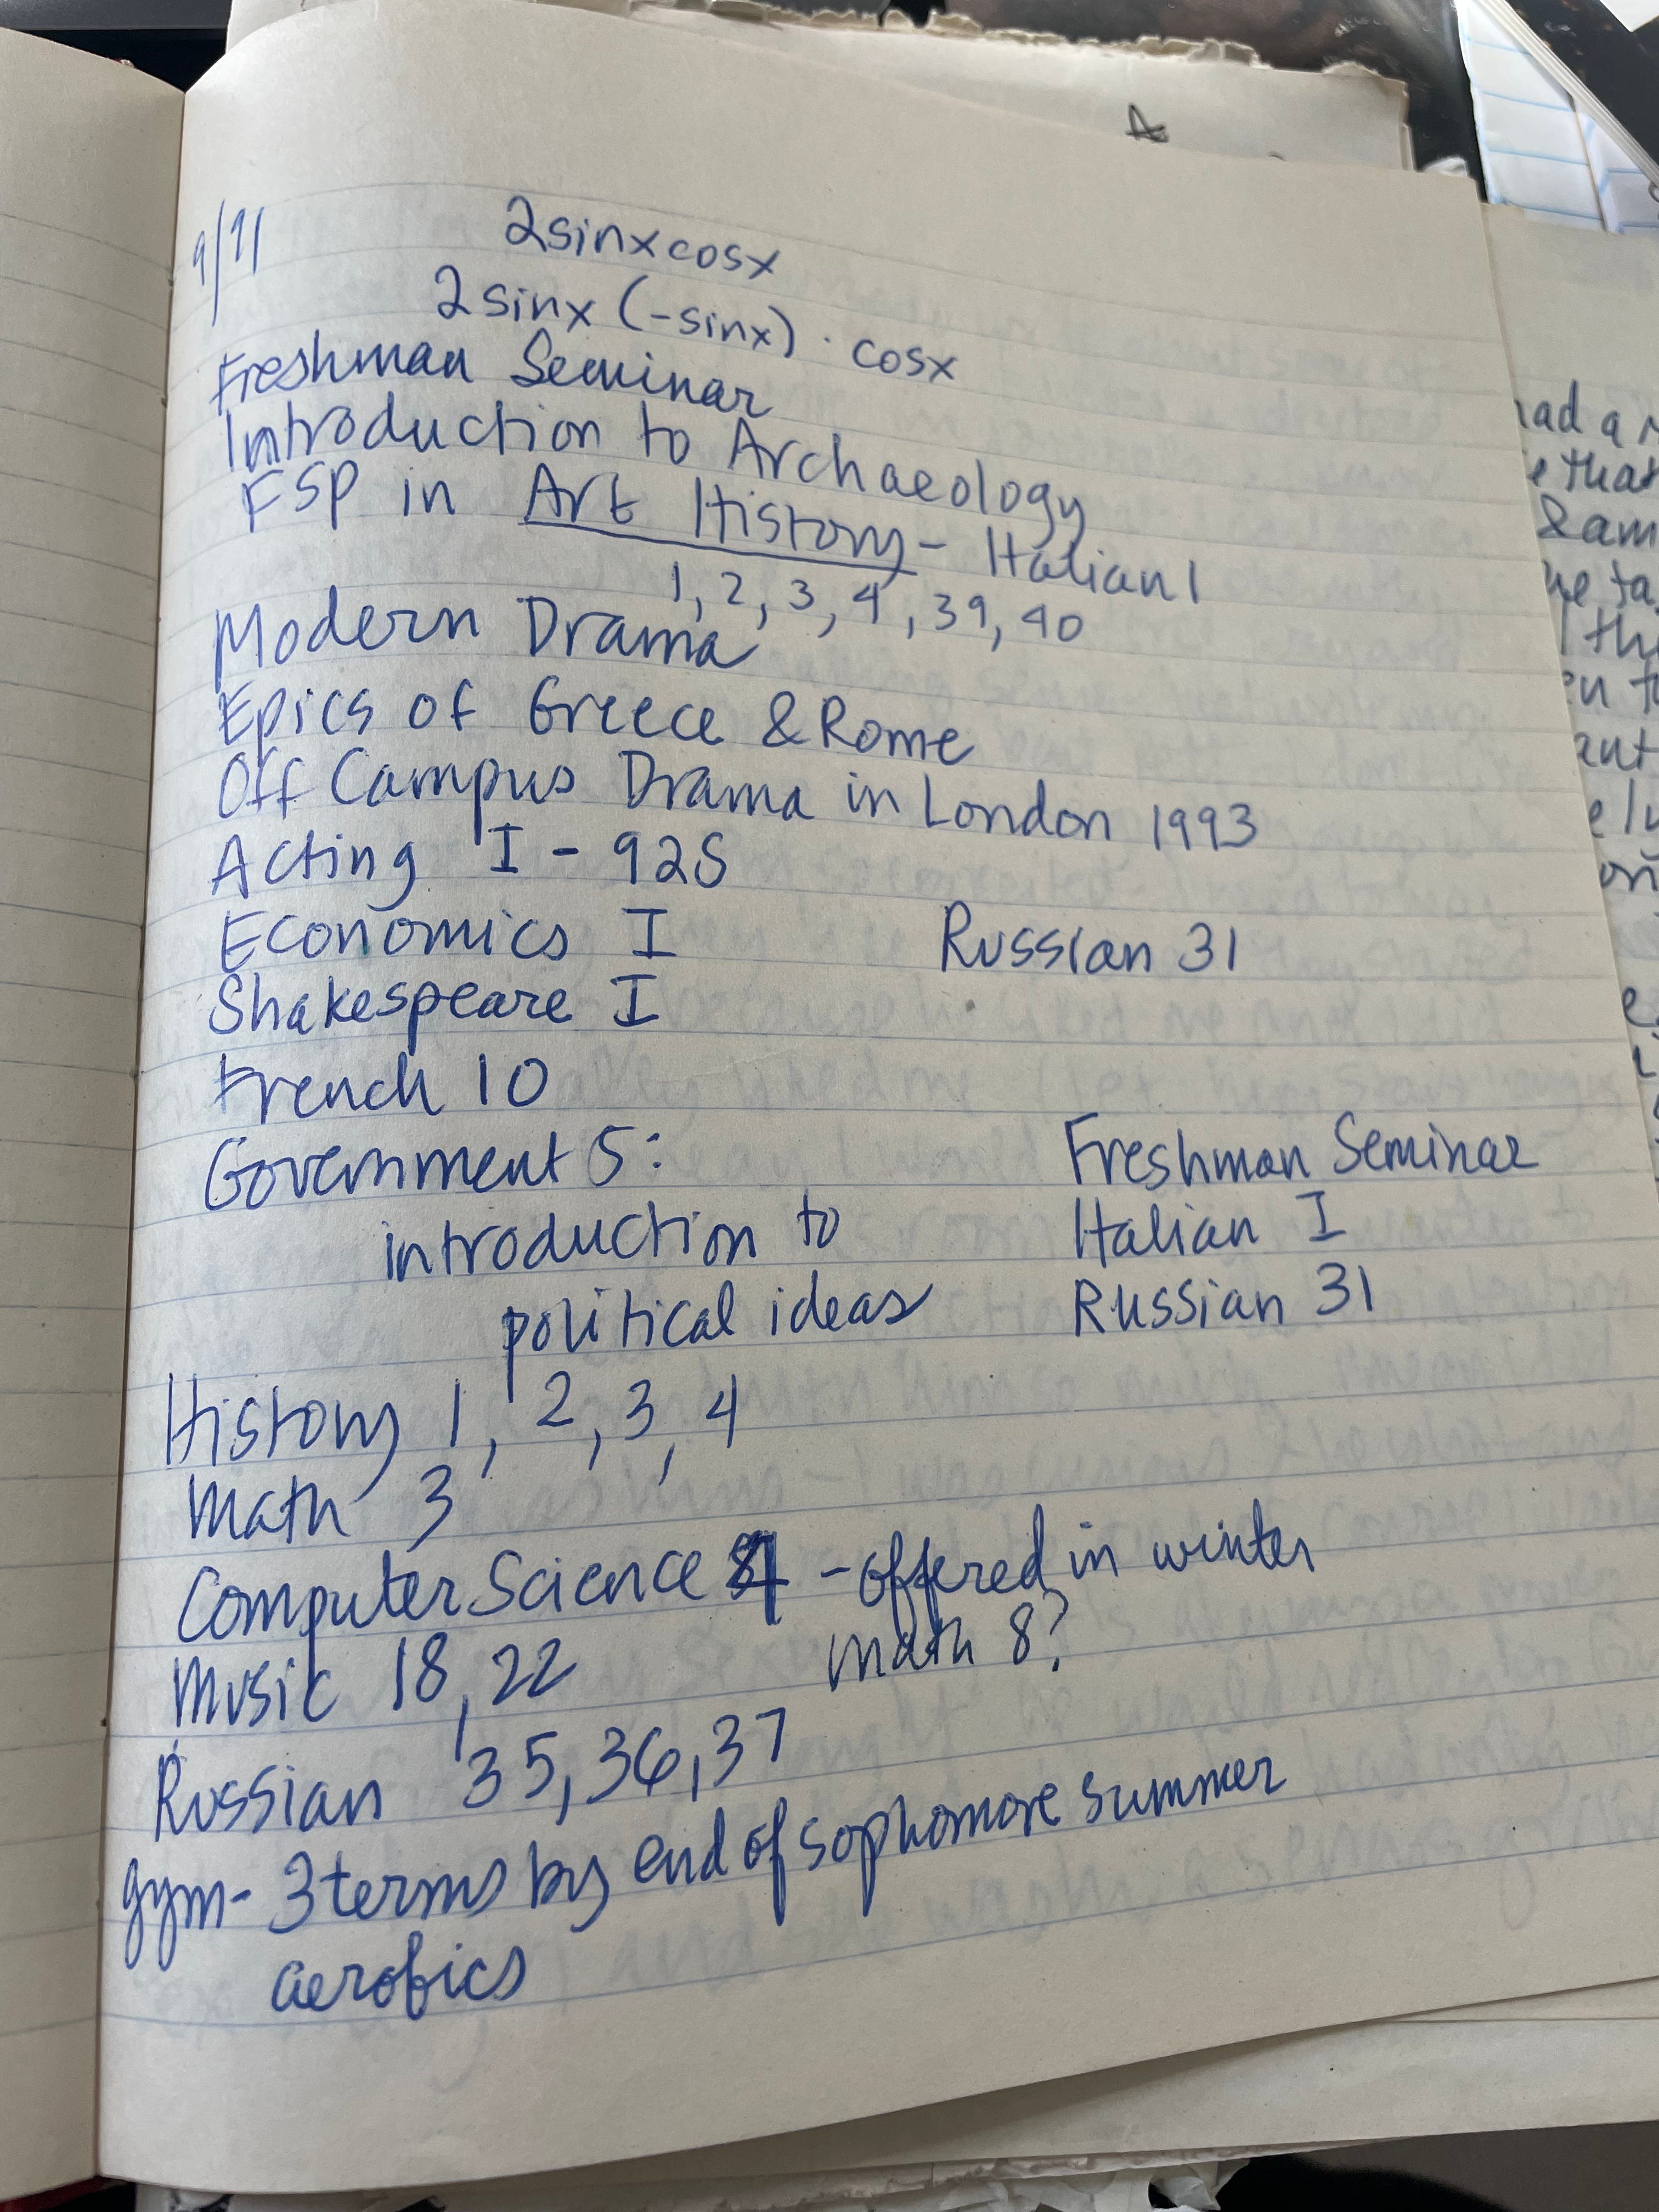 9/91
2sinxcosx
2sinx (-sinx) · cosx
Freshman Seminar
Introduction to Archaeology
FSP in Art History - Italian 1
1, 2, 3, 4, 39, 40
Modern Drama
Epics of Greece & Rome
Off Campus Drama in London 1993
Acting I - 92S
Economics I
Russian 31
Shakespeare I
French 10
Government 5:
introduction to
political ideas
Freshman Seminar
Italian I
Russian 31
History 1, 2, 3, 4
Math 3
Computer Science 4 - offered in winter
Math 8?
Music 18, 22
Russian 35, 36, 37
gym - 3 terms by end of sophomore summer
aerobics
had a
that
&am
the
ant